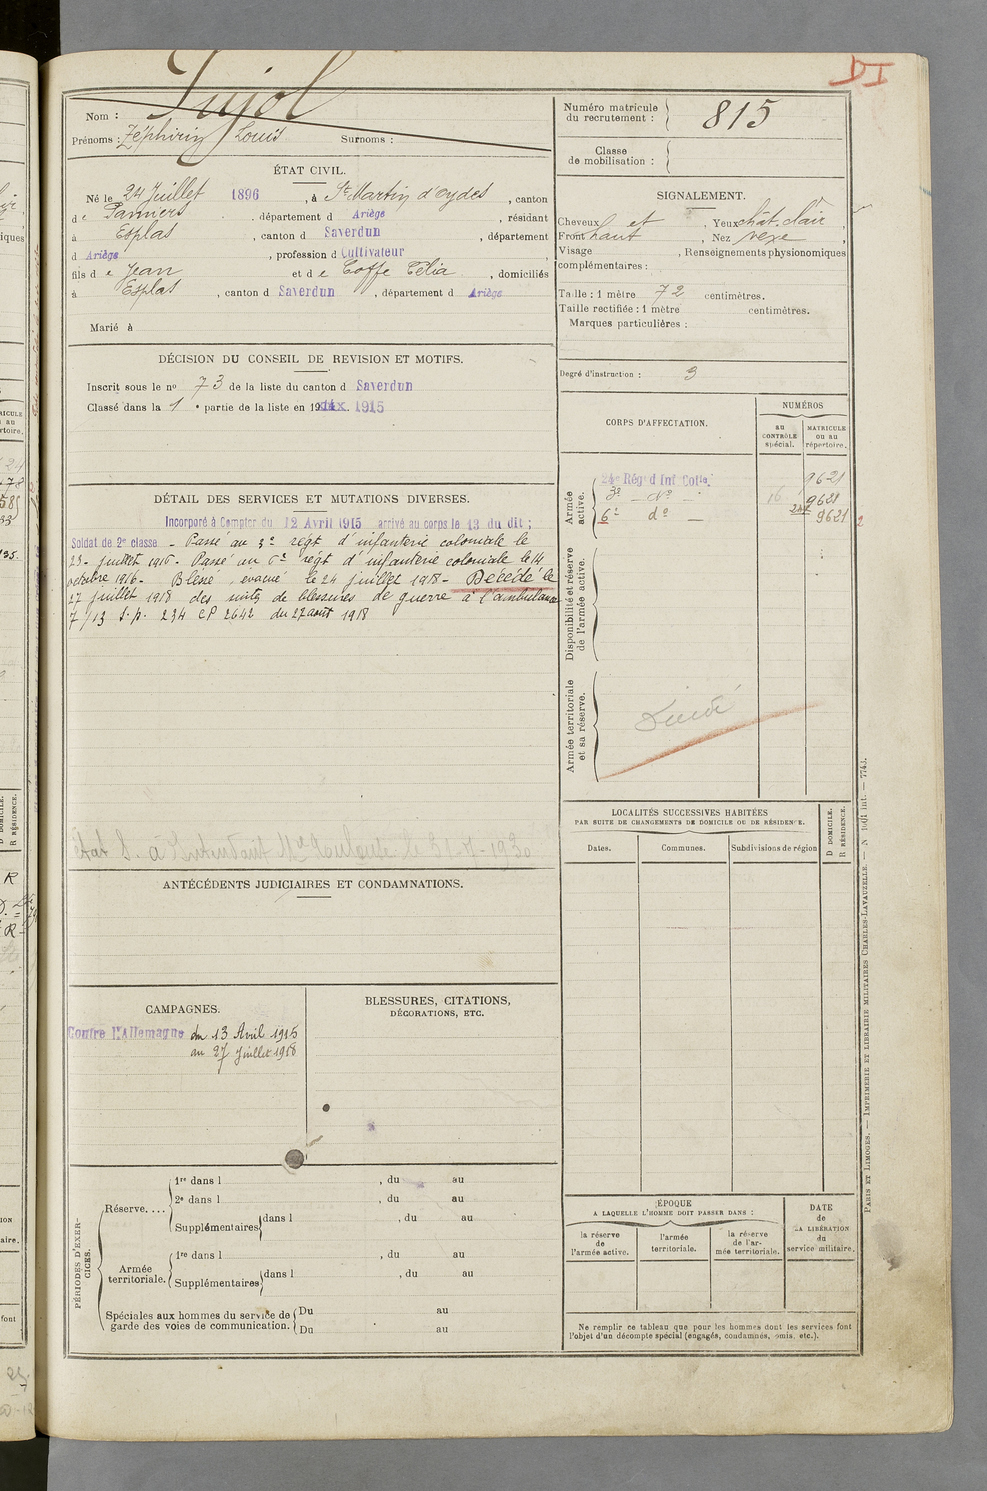 DI
Nom : Pujol
Prénoms : Zéphirin Louis Surnoms :
Numéro matricule du recrutement : 815
Classe de mobilisation :
ÉTAT CIVIL.
Né le 24 Juillet 1896, à St Martin d'Oydes, canton
de Pamiers, département d Ariège, résidant
à Esplas, canton d Saverdun, département
d Ariège, profession d Cultivateur
fils de Jean et de Coffe Célia, domiciliés
à Esplas, canton d Saverdun, département d Ariège
Marié à
SIGNALEMENT.
Cheveux et , Yeux chât. clair,
Front haut , Nez vexe,
Visage , Renseignements physionomiques
complémentaires :
Taille : 1 mètre 72 centimètres.
Taille rectifiée : 1 mètre centimètres.
Marques particulières :
Degré d'instruction : 3
DÉCISION DU CONSEIL DE REVISION ET MOTIFS.
Inscrit sous le no 73 de la liste du canton d Saverdun
Classé dans la 1e partie de la liste en 19 1915
DÉTAIL DES SERVICES ET MUTATIONS DIVERSES.
Incorporé à Compter du 12 Avril 1915 arrivé au corps le 13 du dit ;
Soldat de 2e classe - Passé au 3e régt d'infanterie coloniale le
23 - juillet 1916 - Passé au 6e régt d'infanterie coloniale le 14
octobre 1916 - Blessé, évacué le 24 juillet 1918 - Décédé le
27 juillet 1918 des suites de blessures de guerre à l'ambulance
7/13 S.p. 234 CP 2642 du 27 août 1918
CORPS D'AFFECTATION.
NUMÉROS
au CONTRÔLE spécial.
MATRICULE ou au répertoire.
Armée active.
24e Rég d Inf Colle. 9621
3e - do - 16 9621
6e do - 9621 2
Disponibilité et réserve de l'armée active.
Armée territoriale et sa réserve.
état S. à 31-7-1930
ANTÉCÉDENTS JUDICIAIRES ET CONDAMNATIONS.
LOCALITÉS SUCCESSIVES HABITÉES
PAR SUITE DE CHANGEMENTS DE DOMICILE OU DE RÉSIDENCE.
Dates. Communes. Subdivisions de région
D DOMICILE.
R RÉSIDENCE.
CAMPAGNES.
Contre l'Allemagne du 13 Avril 1915
au 27 Juillet 1918
BLESSURES, CITATIONS,
DÉCORATIONS, ETC.
PÉRIODES D'EXERCICES.
Réserve....
1re dans l , du au
2e dans l , du au
Supplémentaires dans l , du au
Armée territoriale.
1re dans l , du au
Supplémentaires dans l , du au
Spéciales aux hommes du service de Du au
garde des voies de communication. Du au
ÉPOQUE
A LAQUELLE L'HOMME DOIT PASSER DANS :
la réserve de l'armée active.
l'armée territoriale.
la réserve de l'armée territoriale.
DATE de LA LIBÉRATION du service militaire.
Ne remplir ce tableau que pour les hommes dont les services font
l'objet d'un décompte spécial (engagés, condamnés, omis, etc.).
PARIS ET LIMOGES. — IMPRIMERIE ET LIBRAIRIE MILITAIRES CHARLES-LAVAUZELLE.